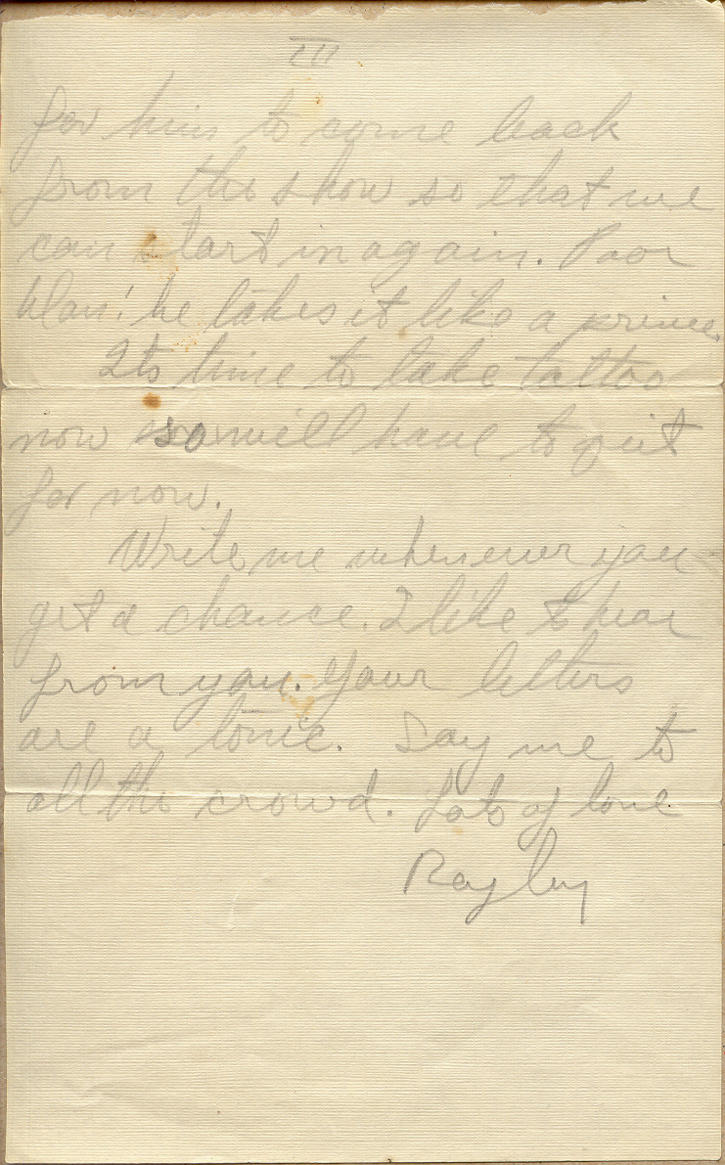 III
for him to come back
from the show so that we
can start in again. Poor
Man! he takes it like a prince.
Its time to take tattoo
now so will have to quit
for now.
Write me whenever you
get a chance. I like to hear
from you. Your letters
are a tonic. Say me to
all the crowd. Lots of love